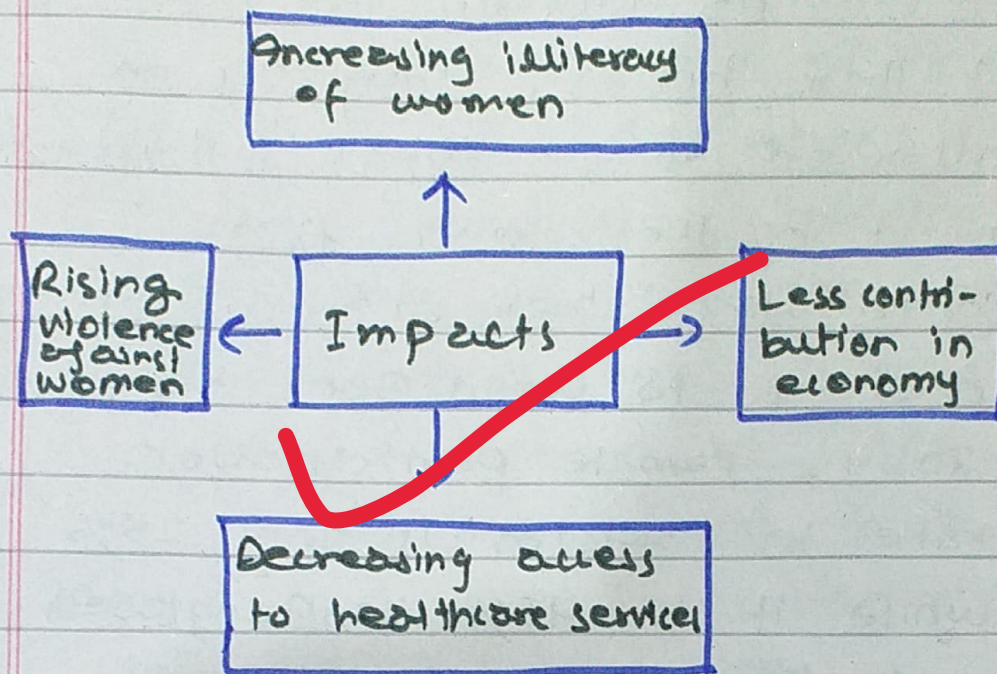 Increasing illiteracy
of women
Rising
violence
against
women
Impacts
Less contri-
bution in
economy
Decreasing access
to healthcare services